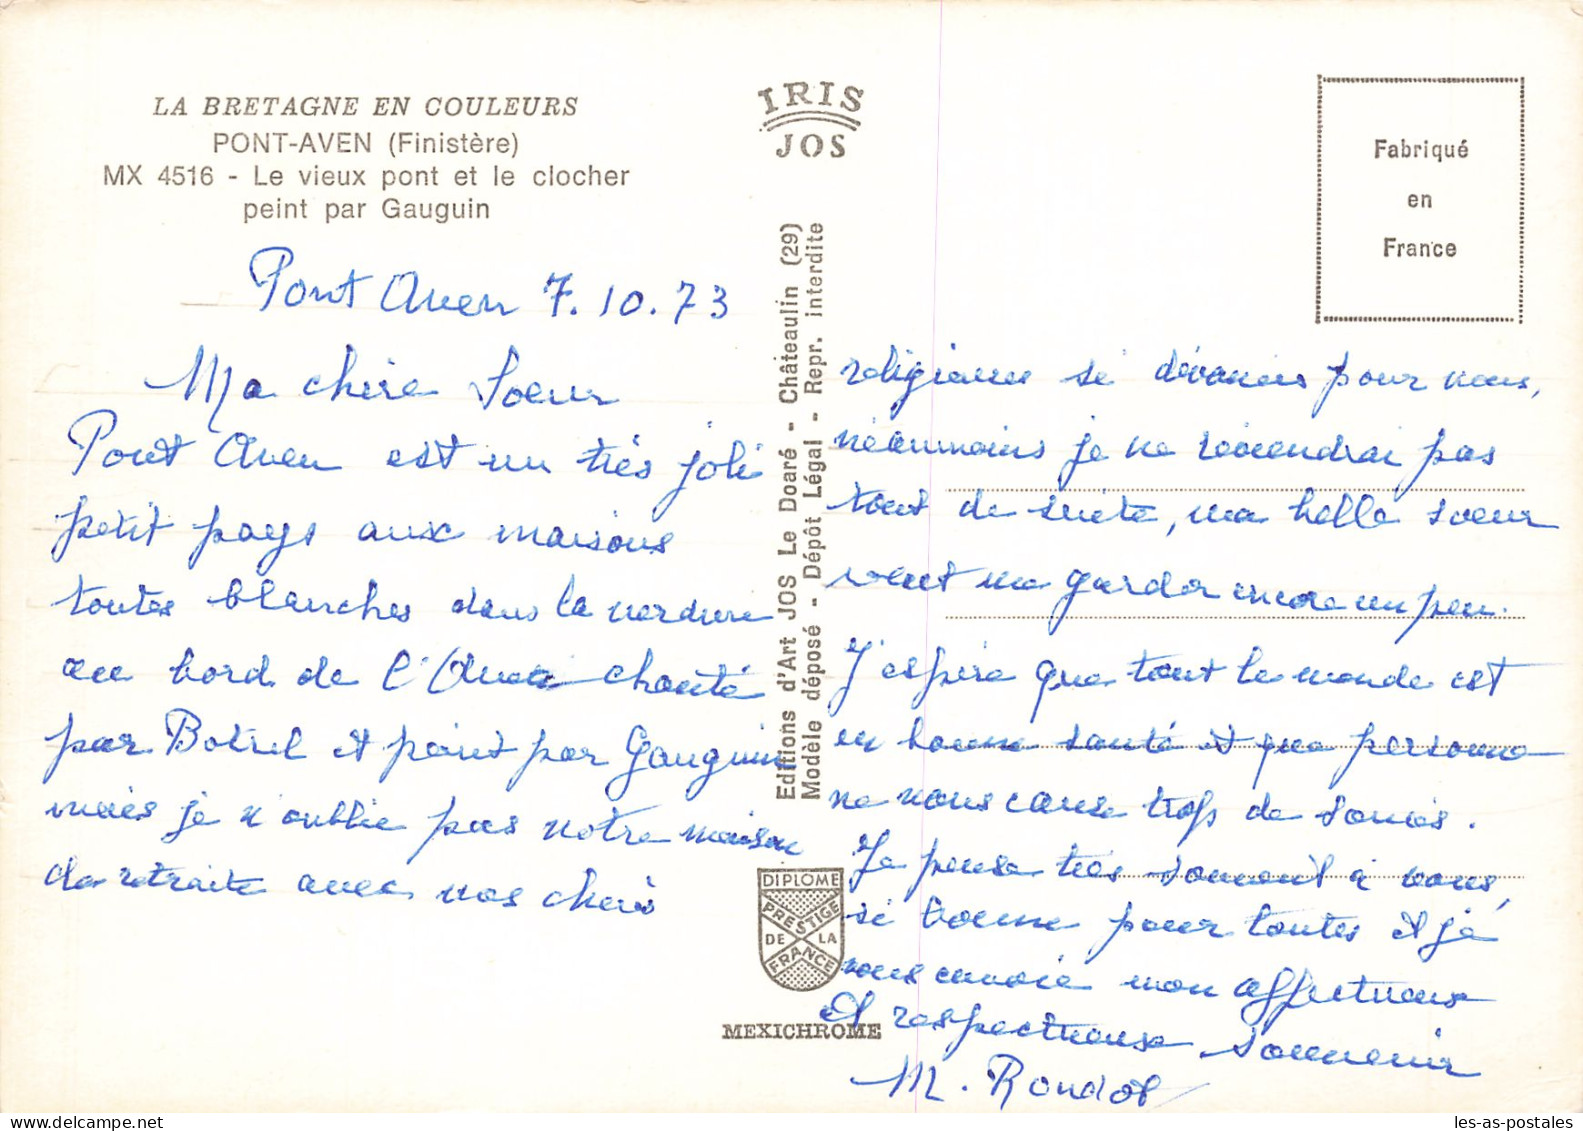 LA BRETAGNE EN COULEURS
PONT-AVEN (Finistère)
MX 4516 - Le vieux pont et le clocher
peint par Gauguin
Pont Aven 7.10.73
Ma chère Soeur
Pont Aven est un très joli
petit pays aux maisons
toutes blanches dans la verdure
au bord de l'Aven chanté
par Botrel et peint par Gauguin
mais je n'oublie pas notre maison
de retraite avec nos chères
IRIS
JOS
Editions d'Art JOS Le Doaré - Châteaulin (29)
Modèle déposé - Dépôt Légal - Repr. interdite
DIPLOME
PRESTIGE
DE LA
FRANCE
MEXICHROME
Fabriqué
en
France
religieuses si dévouées pour nous,
néanmoins je ne reviendrai pas
tout de suite, ma belle soeur
veut me garder encore un peu.
J'espère que tout le monde est
en bonne santé et que personne
ne vous cause trop de soucis.
Je pense très souvent à vous,
si bonne pour toutes et je
vous envoie mon affectueux
et respectueuse souvenir
M. Rondot
les-as-postales